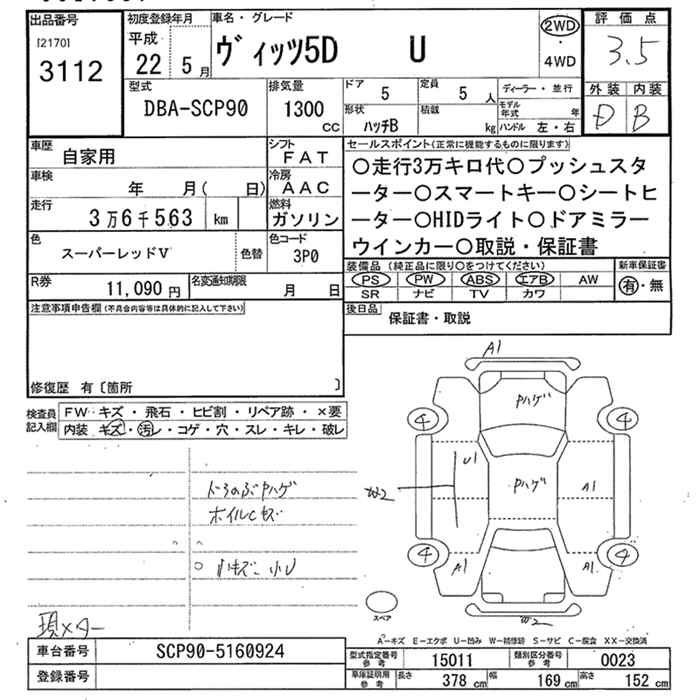 出品番号 初度登録年月 車名・グレード 評価点
[2170] 平成 ヴィッツ5D U 2WD・4WD 3.5
3112 22 5月
型式 排気量 ドア 5 定員 5人 ディーラー・並行 外装 内装
DBA-SCP90 1300cc 形状 ハッチB 積載 kg モデル年式 年 ハンドル 左・右 D B
車歴 自家用 シフト FAT セールスポイント(正常に機能するものに限ります)
車検 年 月( 日) 冷房 AAC ○走行3万キロ代○プッシュスタ
走行 3万6千563 km 燃料 ガソリン ーター○スマートキー○シートヒ
ーター○HIDライト○ドアミラー
色 スーパーレッドV 色替 色コード 3P0 ウインカー○取説・保証書
R券 11,090円 名変通知期限 月 日 装備品(純正品に限り○をつけてください) 新車保証書
PS PW ABS エアB AW 有・無
SR ナビ TV カワ
注意事項申告欄(不具合内容等は具体的に記入して下さい) 後日品 保証書・取説
修復歴 有〔箇所 〕
検査員記入欄 FW キズ・飛石・ヒビ割・リペア跡・×要
内装 キズ・汚レ・コゲ・穴・スレ・キレ・破レ
A1
Pハゲ
4 4
U1 Pハゲ A1
W2
4 4
A1 A1
W2
スペア
ドろのぶPハゲ
ホイルCキズ
○ 小キズ 小U
現メーター
A-キズ E-エクボ U-凹み W-補修跡 S-サビ C-腐食 XX-交換済
車台番号 SCP90-5160924 型式指定番号 参考 15011 類別区分番号 参考 0023
登録番号 車庫証明用 参考 長さ 378 cm 幅 169 cm 高さ 152 cm